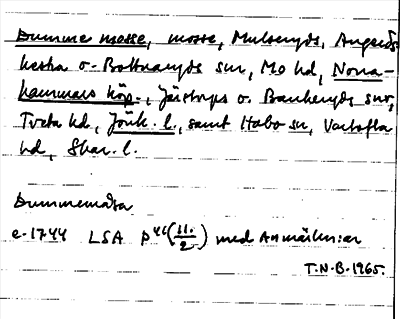 Dumme mosse, mosse, Mulseryds, Angerds-
hestra o. Bottnaryds snr, Mo hd, Norra-
hammars köp., Järstorps o. Bankeryds snr,
Tveta hd, Jönk. l., samt Habo sn, Vartofta
hd, Skar. l.
Dummemåsa
c. 1744 LSA P 46 (11./2) med Anmärkn:ar
T.N.B. 1965.